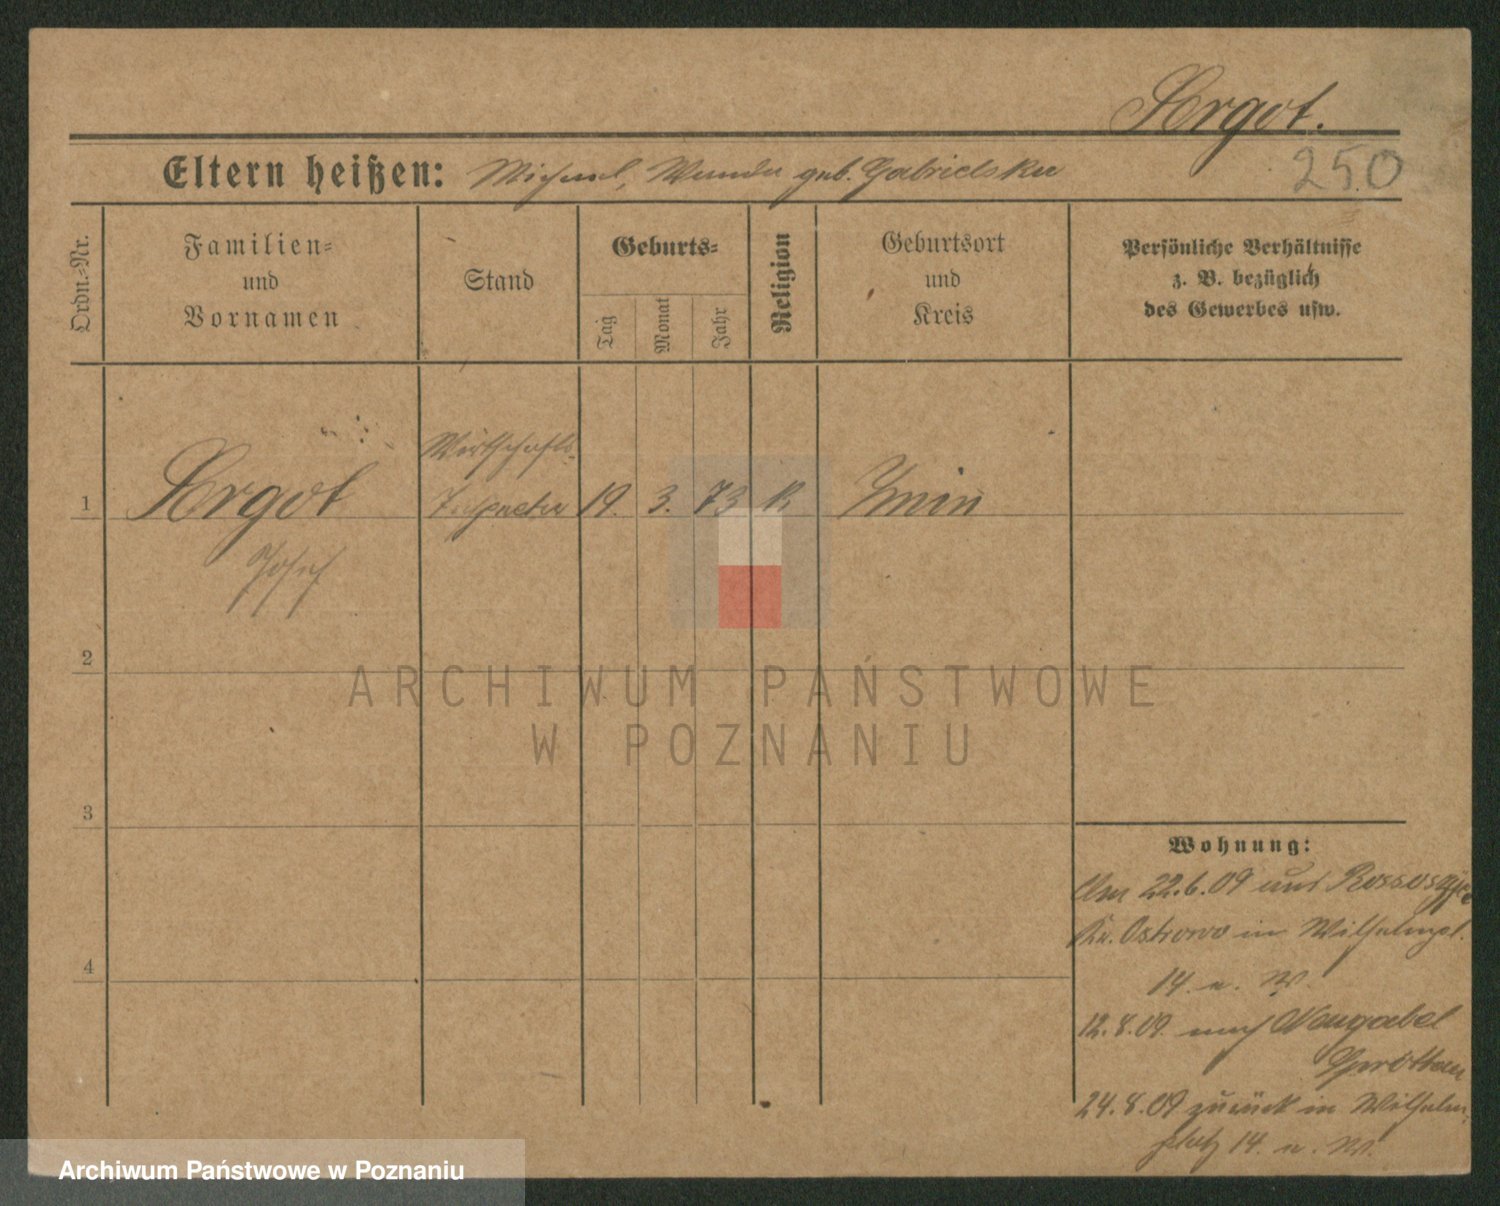 Argot.
250
Eltern heißen: Michael, Wanda geb. Gabrielska
Ordn.-Nr.
Familien-
und
Vornamen
Stand
Geburts-
Tag
Monat
Jahr
Religion
Geburtsort
und
Kreis
Persönliche Verhältnisse
z. B. bezüglich
des Gewerbes usw.
Wirtschafts-
1 Argot 19. 3. 73 K Xnin
Josef
2
3
4
Wohnung:
Am 22.6.09 aus
Kr. Ostrowo in Wilhelmpl.
14. n. W.
12.8.09. nach Neugabel
Sprottau
24.8.09 zurück in Wilhelm-
platz 14. n. W.
ARCHIWUM PAŃSTWOWE
W POZNANIU
Archiwum Państwowe w Poznaniu